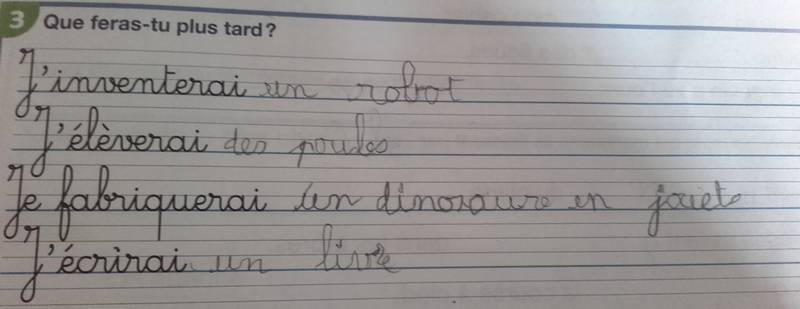 3 Que feras-tu plus tard ?
J'inventerai un robot
J'élèverai des poules
Je fabriquerai un dinosaure en jouets
J'écrirai un livre